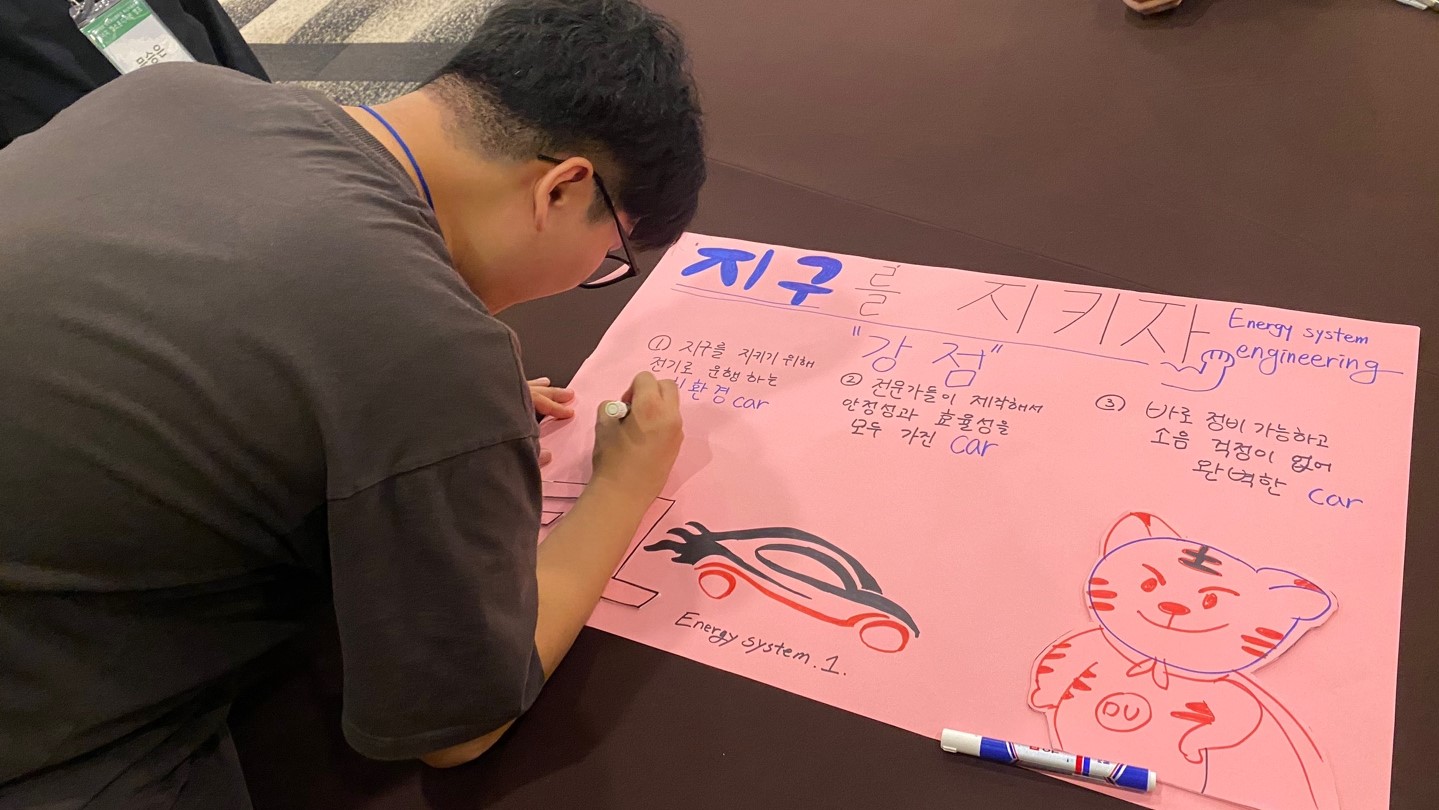 지구를 지키자
Energy system
engineering
"강점"
① 지구를 지키기 위해
전기로 운행하는
환경 car
② 전문가들이 제작해서
안정성과 효율성을
모두 가진 car
③ 바로 정비 가능하고
소음 걱정이 없어
완벽한 car
Energy system.1.
DU